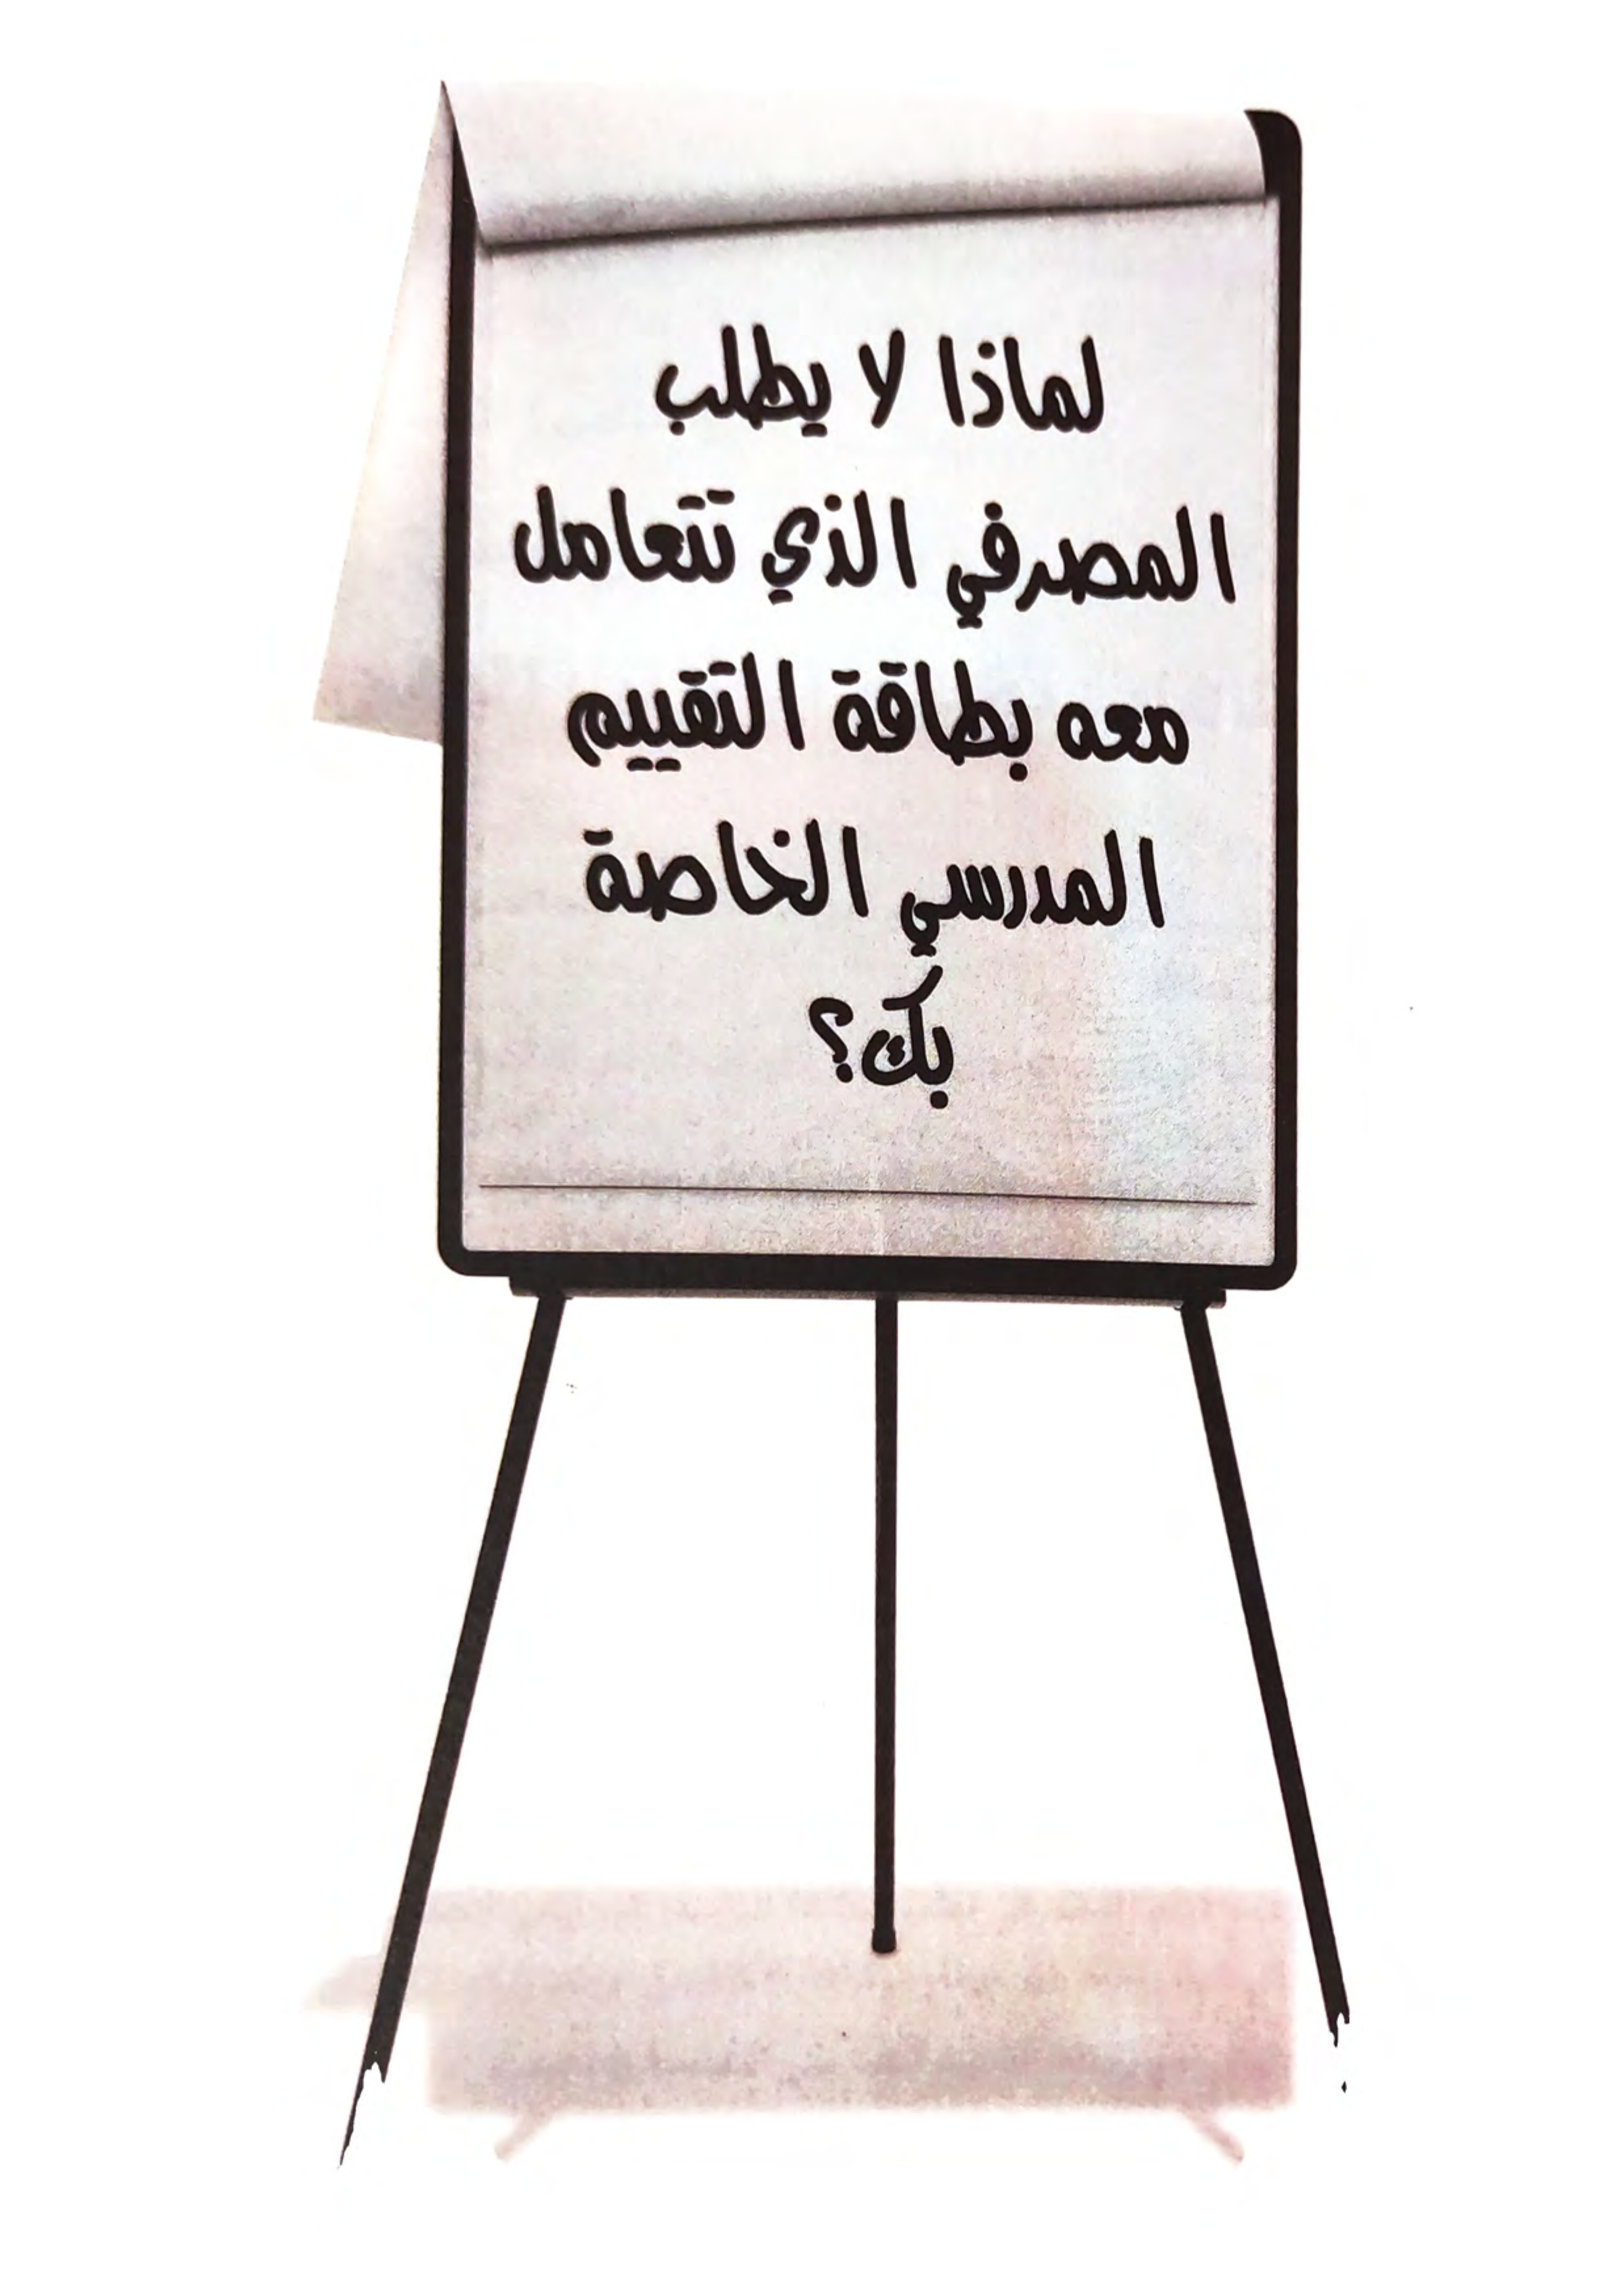 لماذا لا يطلب
المصرفي الذي تتعامل
معه بطاقة التقييم
المدرسي الخاصة
بك؟